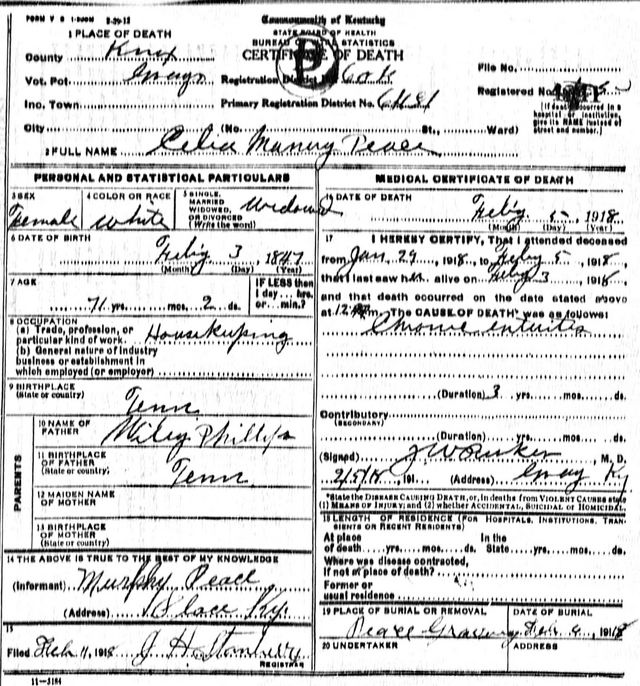 FORM V S 1-200M 2-29-12
Commonwealth of Kentucky
STATE BOARD OF HEALTH
BUREAU OF VITAL STATISTICS
CERTIFICATE OF DEATH
1 PLACE OF DEATH
County Knox
Vot. Pct. Grays
Registration District
File No.
Inc. Town
Primary Registration District No.
Registered No.
City (No. St., Ward)
[If death occurred in a hospital or institution, give its NAME instead of street and number.]
2 FULL NAME Celia Peace
PERSONAL AND STATISTICAL PARTICULARS
3 SEX Female
4 COLOR OR RACE White
5 SINGLE, MARRIED WIDOWED, OR DIVORCED (Write the word) Widowed
6 DATE OF BIRTH Feby 3 1847
(Month) (Day) (Year)
7 AGE 71 yrs. mos. 2 ds.
IF LESS than 1 day... hrs. or... min.?
8 OCCUPATION
(a) Trade, profession, or particular kind of work. Housekeeping
(b) General nature of industry business or establishment in which employed (or employer)
9 BIRTHPLACE (State or country) Tenn
PARENTS
10 NAME OF FATHER Wiley Phillips
11 BIRTHPLACE OF FATHER (State or country) Tenn
12 MAIDEN NAME OF MOTHER
13 BIRTHPLACE OF MOTHER (State or country)
14 THE ABOVE IS TRUE TO THE BEST OF MY KNOWLEDGE
(Informant) Murphy Peace
(Address) Place Ky.
15
Filed Feb 11, 1918 J H Stanberry
REGISTRAR
11-3184
MEDICAL CERTIFICATE OF DEATH
DATE OF DEATH Feby 5 1918
(Month) (Day) (Year)
17 I HEREBY CERTIFY, That I attended deceased
from Jan 29, 1918, to Feby 5, 1918,
that I last saw her alive on Feby 3, 1918,
and that death occurred on the date stated above
at 12 m. The CAUSE OF DEATH* was as follows:
Chronic enteritis
(Duration) 3 yrs. mos. ds.
Contributory (SECONDARY)
(Duration) yrs. mos. ds.
(Signed), M. D.
2/5/18, 191 (Address) Gray Ky
*State the DISEASE CAUSING DEATH, or, in deaths from VIOLENT CAUSES state (1) MEANS OF INJURY; and (2) whether ACCIDENTAL, SUICIDAL or HOMICIDAL.
18 LENGTH OF RESIDENCE (FOR HOSPITALS, INSTITUTIONS, TRANSIENTS OR RECENT RESIDENTS)
At place of death yrs. mos. ds. In the State yrs. mos. ds.
Where was disease contracted, if not at place of death?
Former or usual residence
19 PLACE OF BURIAL OR REMOVAL Peace
DATE OF BURIAL Feb. 6, 1918
20 UNDERTAKER
ADDRESS